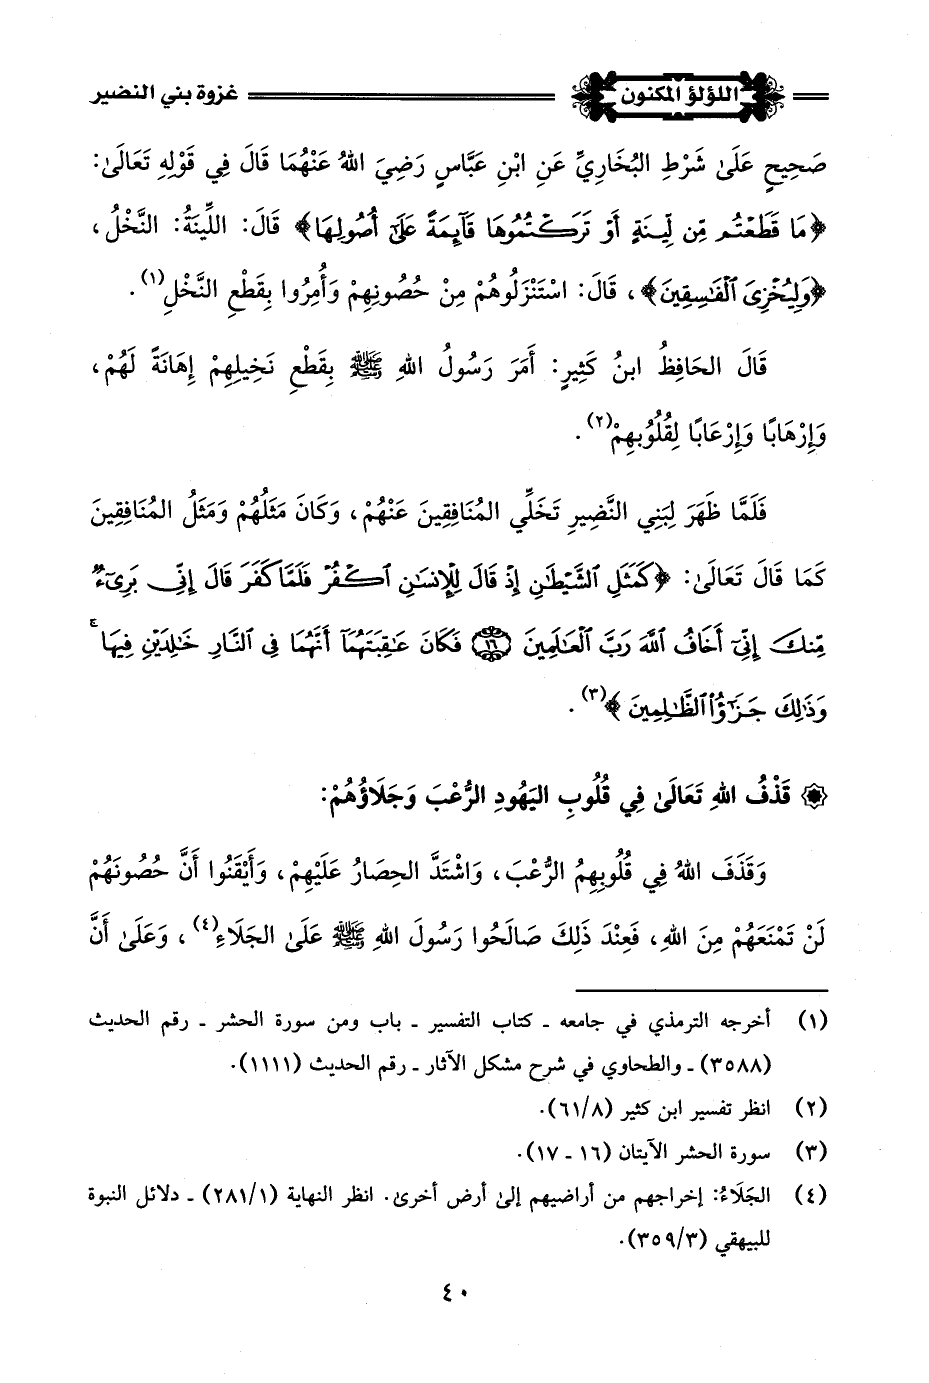 اللؤلؤ المكنون غزوة بني النضير
صَحِيحٍ عَلَىٰ شَرْطِ البُخَارِيِّ عَنِ ابْنِ عَبَّاسٍ رَضِيَ اللهُ عَنْهُمَا قَالَ فِي قَوْلِهِ تَعَالَىٰ:
﴿مَا قَطَعْتُم مِّن لِّينَةٍ أَوْ تَرَكْتُمُوهَا قَآئِمَةً عَلَىٰٓ أُصُولِهَا﴾ قَالَ: اللِّينَةُ: النَّخْلُ،
﴿وَلِيُخْزِىَ ٱلْفَٰسِقِينَ﴾، قَالَ: اسْتَنْزَلُوهُمْ مِنْ حُصُونِهِمْ وَأُمِرُوا بِقَطْعِ النَّخْلِ(١).
قَالَ الحَافِظُ ابنُ كَثِيرٍ: أَمَرَ رَسُولُ اللهِ ﷺ بِقَطْعِ نَخِيلِهِمْ إِهَانَةً لَهُمْ،
وَإِرْهَابًا وَإِرْعَابًا لِقُلُوبِهِمْ(٢).
فَلَمَّا ظَهَرَ لِبَنِي النَّضِيرِ تَخَلِّي المُنَافِقِينَ عَنْهُمْ، وَكَانَ مَثَلُهُمْ وَمَثَلُ المُنَافِقِينَ
كَمَا قَالَ تَعَالَىٰ: ﴿كَمَثَلِ ٱلشَّيْطَٰنِ إِذْ قَالَ لِلْإِنسَٰنِ ٱكْفُرْ فَلَمَّا كَفَرَ قَالَ إِنِّى بَرِىٓءٌ
مِّنكَ إِنِّىٓ أَخَافُ ٱللَّهَ رَبَّ ٱلْعَٰلَمِينَ ١٦ فَكَانَ عَٰقِبَتَهُمَآ أَنَّهُمَا فِى ٱلنَّارِ خَٰلِدَيْنِ فِيهَا ۚ
وَذَٰلِكَ جَزَٰٓؤُا۟ ٱلظَّٰلِمِينَ﴾(٣).
۞ قَذْفُ اللهِ تَعَالَىٰ فِي قُلُوبِ اليَهُودِ الرُّعْبَ وَجَلَاؤُهُمْ:
وَقَذَفَ اللهُ فِي قُلُوبِهِمُ الرُّعْبَ، وَاشْتَدَّ الحِصَارُ عَلَيْهِمْ، وَأَيْقَنُوا أَنَّ حُصُونَهُمْ
لَنْ تَمْنَعَهُمْ مِنَ اللهِ، فَعِنْدَ ذَلِكَ صَالَحُوا رَسُولَ اللهِ ﷺ عَلَىٰ الجَلَاءِ(٤)، وَعَلَىٰ أَنَّ
(١) أخرجه الترمذي في جامعه ـ كتاب التفسير ـ باب ومن سورة الحشر ـ رقم الحديث
(٣٥٨٨) ـ والطحاوي في شرح مشكل الآثار ـ رقم الحديث (١١١١).
(٢) انظر تفسير ابن كثير (٦١/٨).
(٣) سورة الحشر الآيتان (١٦ ـ ١٧).
(٤) الجَلَاءُ: إخراجهم من أراضيهم إلىٰ أرض أخرىٰ. انظر النهاية (٢٨١/١) ـ دلائل النبوة
للبيهقي (٣٥٩/٣).
٤٠